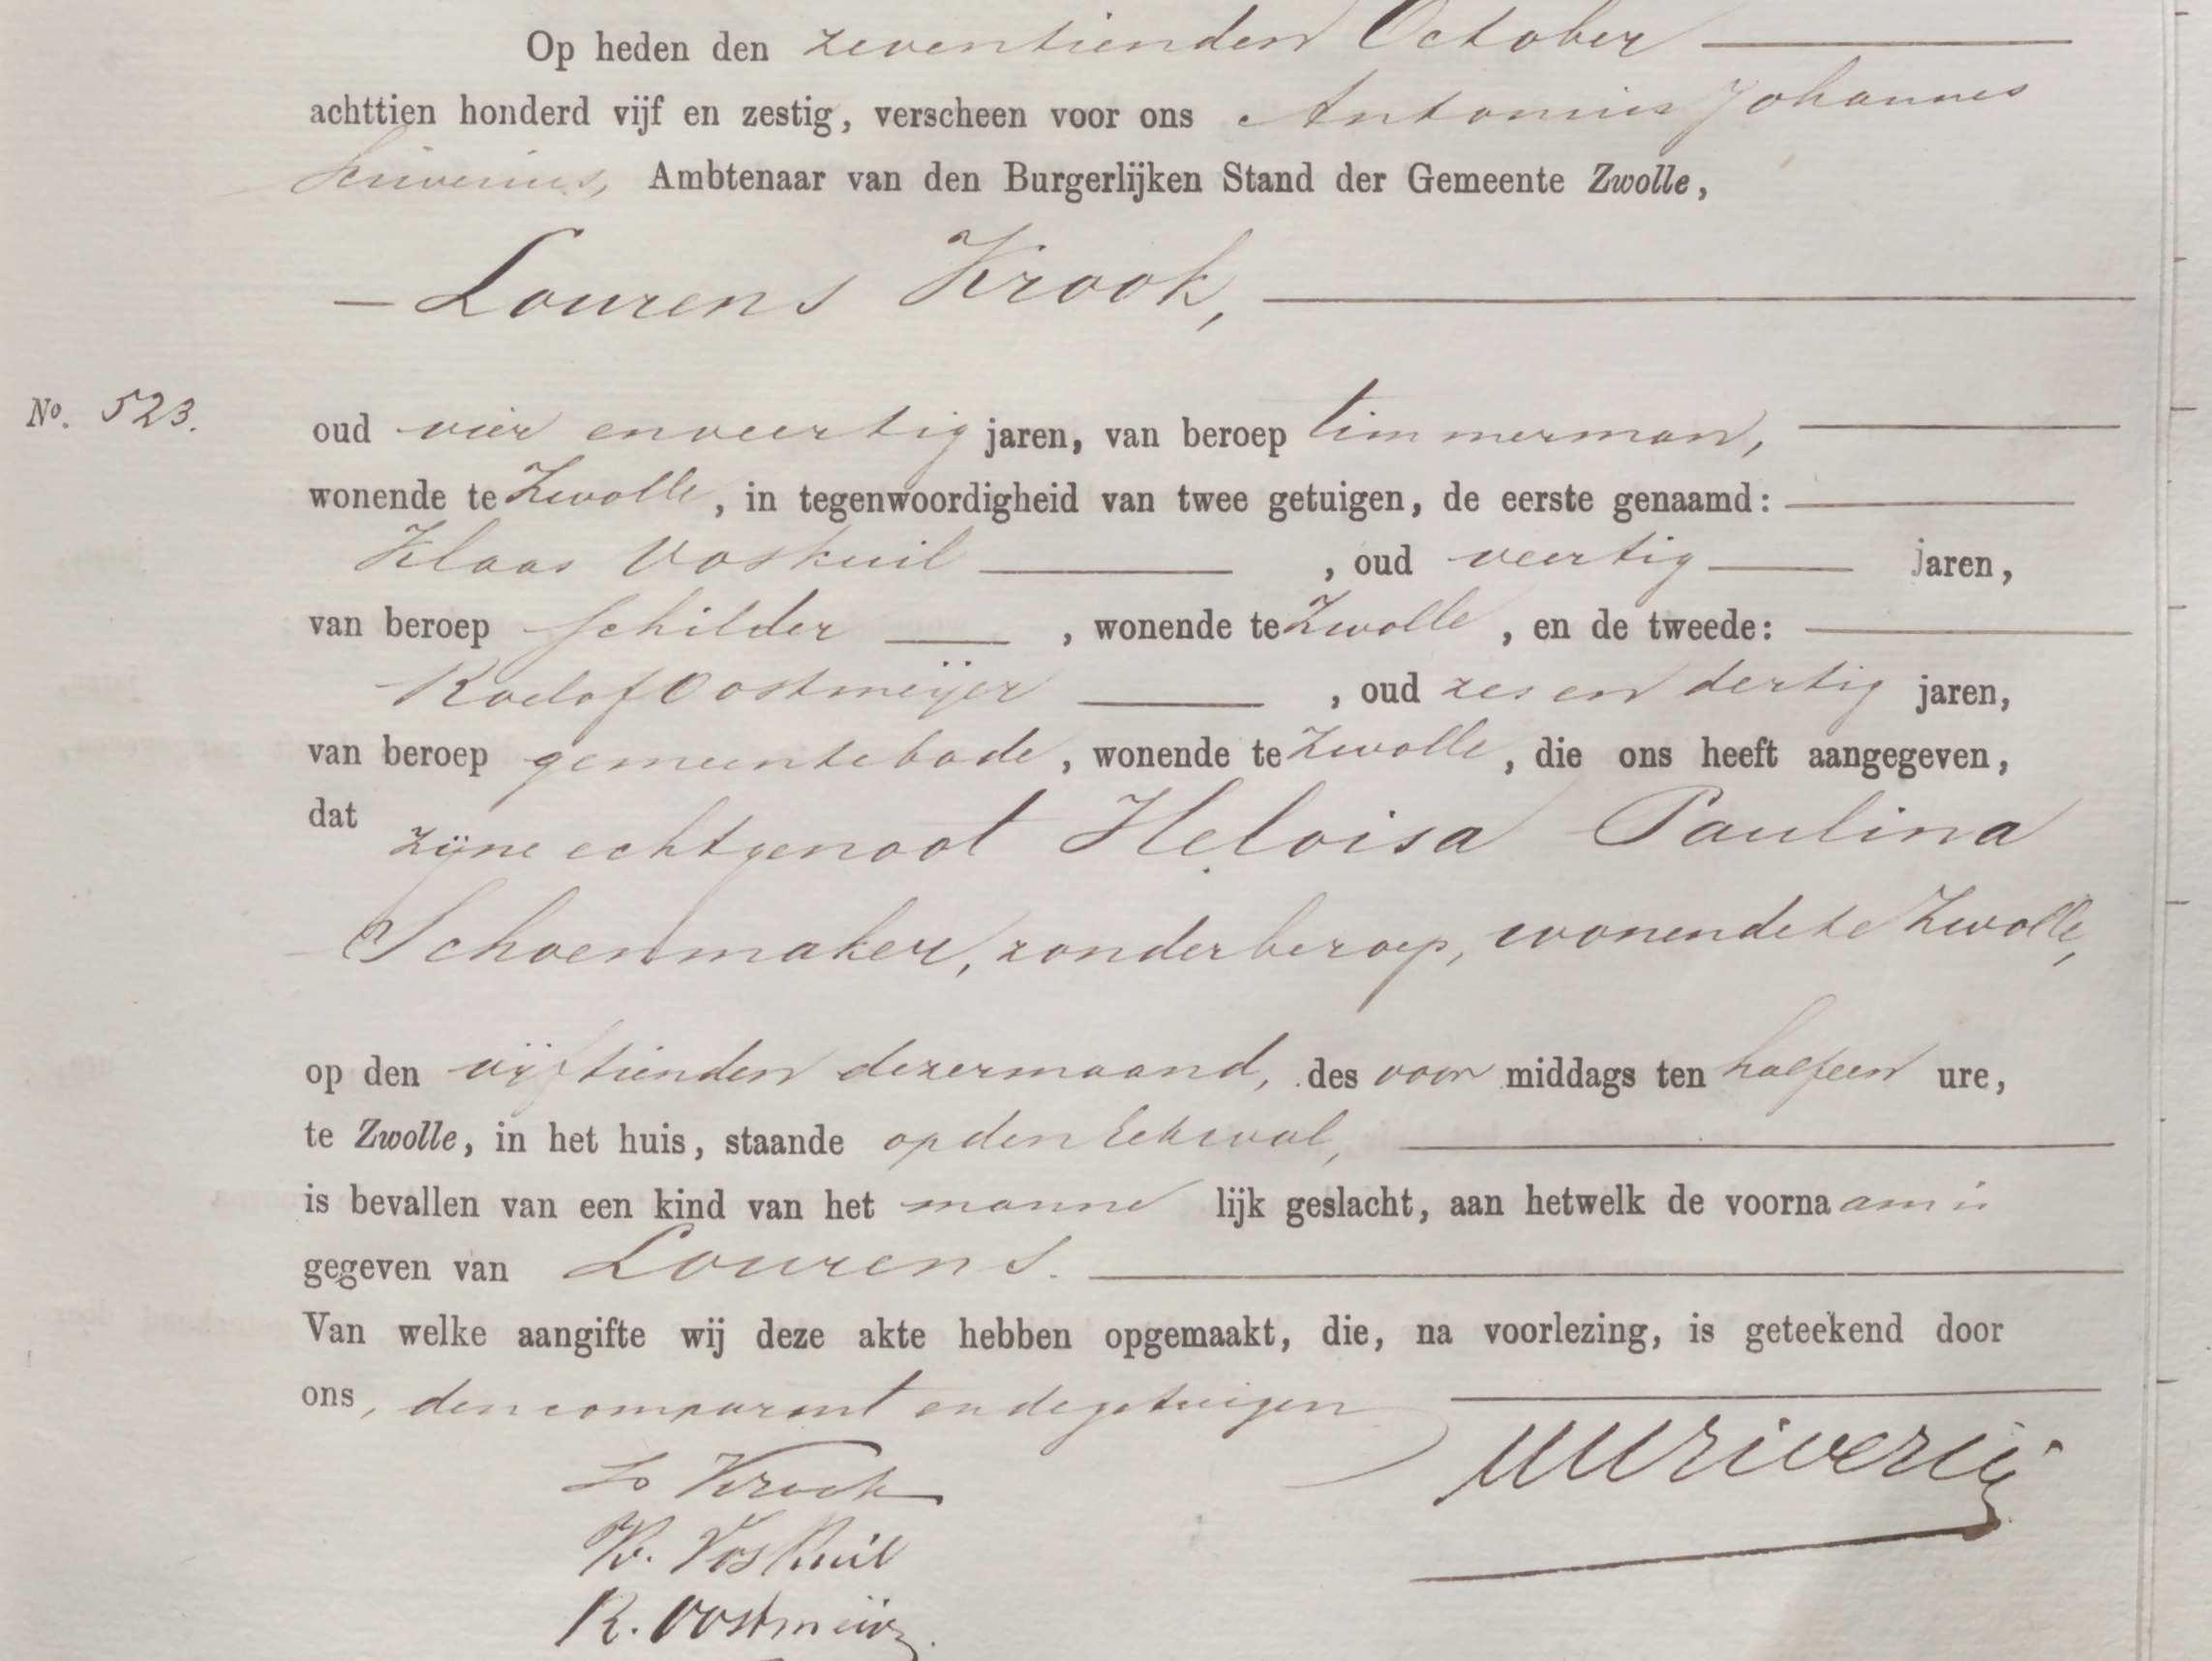 Op heden den zeventienden October
achttien honderd vijf en zestig, verscheen voor ons Antonius Johannes
Scriverius, Ambtenaar van den Burgerlijken Stand der Gemeente Zwolle,
Lourens Krook,
No. 523.
oud vier en veertig jaren, van beroep timmerman,
wonende te Zwolle, in tegenwoordigheid van twee getuigen, de eerste genaamd:
Klaas Voskuil, oud veertig jaren,
van beroep schilder, wonende te Zwolle, en de tweede:
Roelof Oostmeijer, oud zes en dertig jaren,
van beroep gemeentebode, wonende te Zwolle, die ons heeft aangegeven,
dat zijne echtgenoot Heloisa Paulina
Schoenmaker, zonder beroep, wonende te Zwolle,
op den vijftienden dezer maand, des voor middags ten half een ure,
te Zwolle, in het huis, staande op den Eekwal,
is bevallen van een kind van het manne lijk geslacht, aan hetwelk de voornaam is
gegeven van Lourens.
Van welke aangifte wij deze akte hebben opgemaakt, die, na voorlezing, is geteekend door
ons, den comparant en de getuigen
L Krook
K. Voskuil
R. Oostmeijer